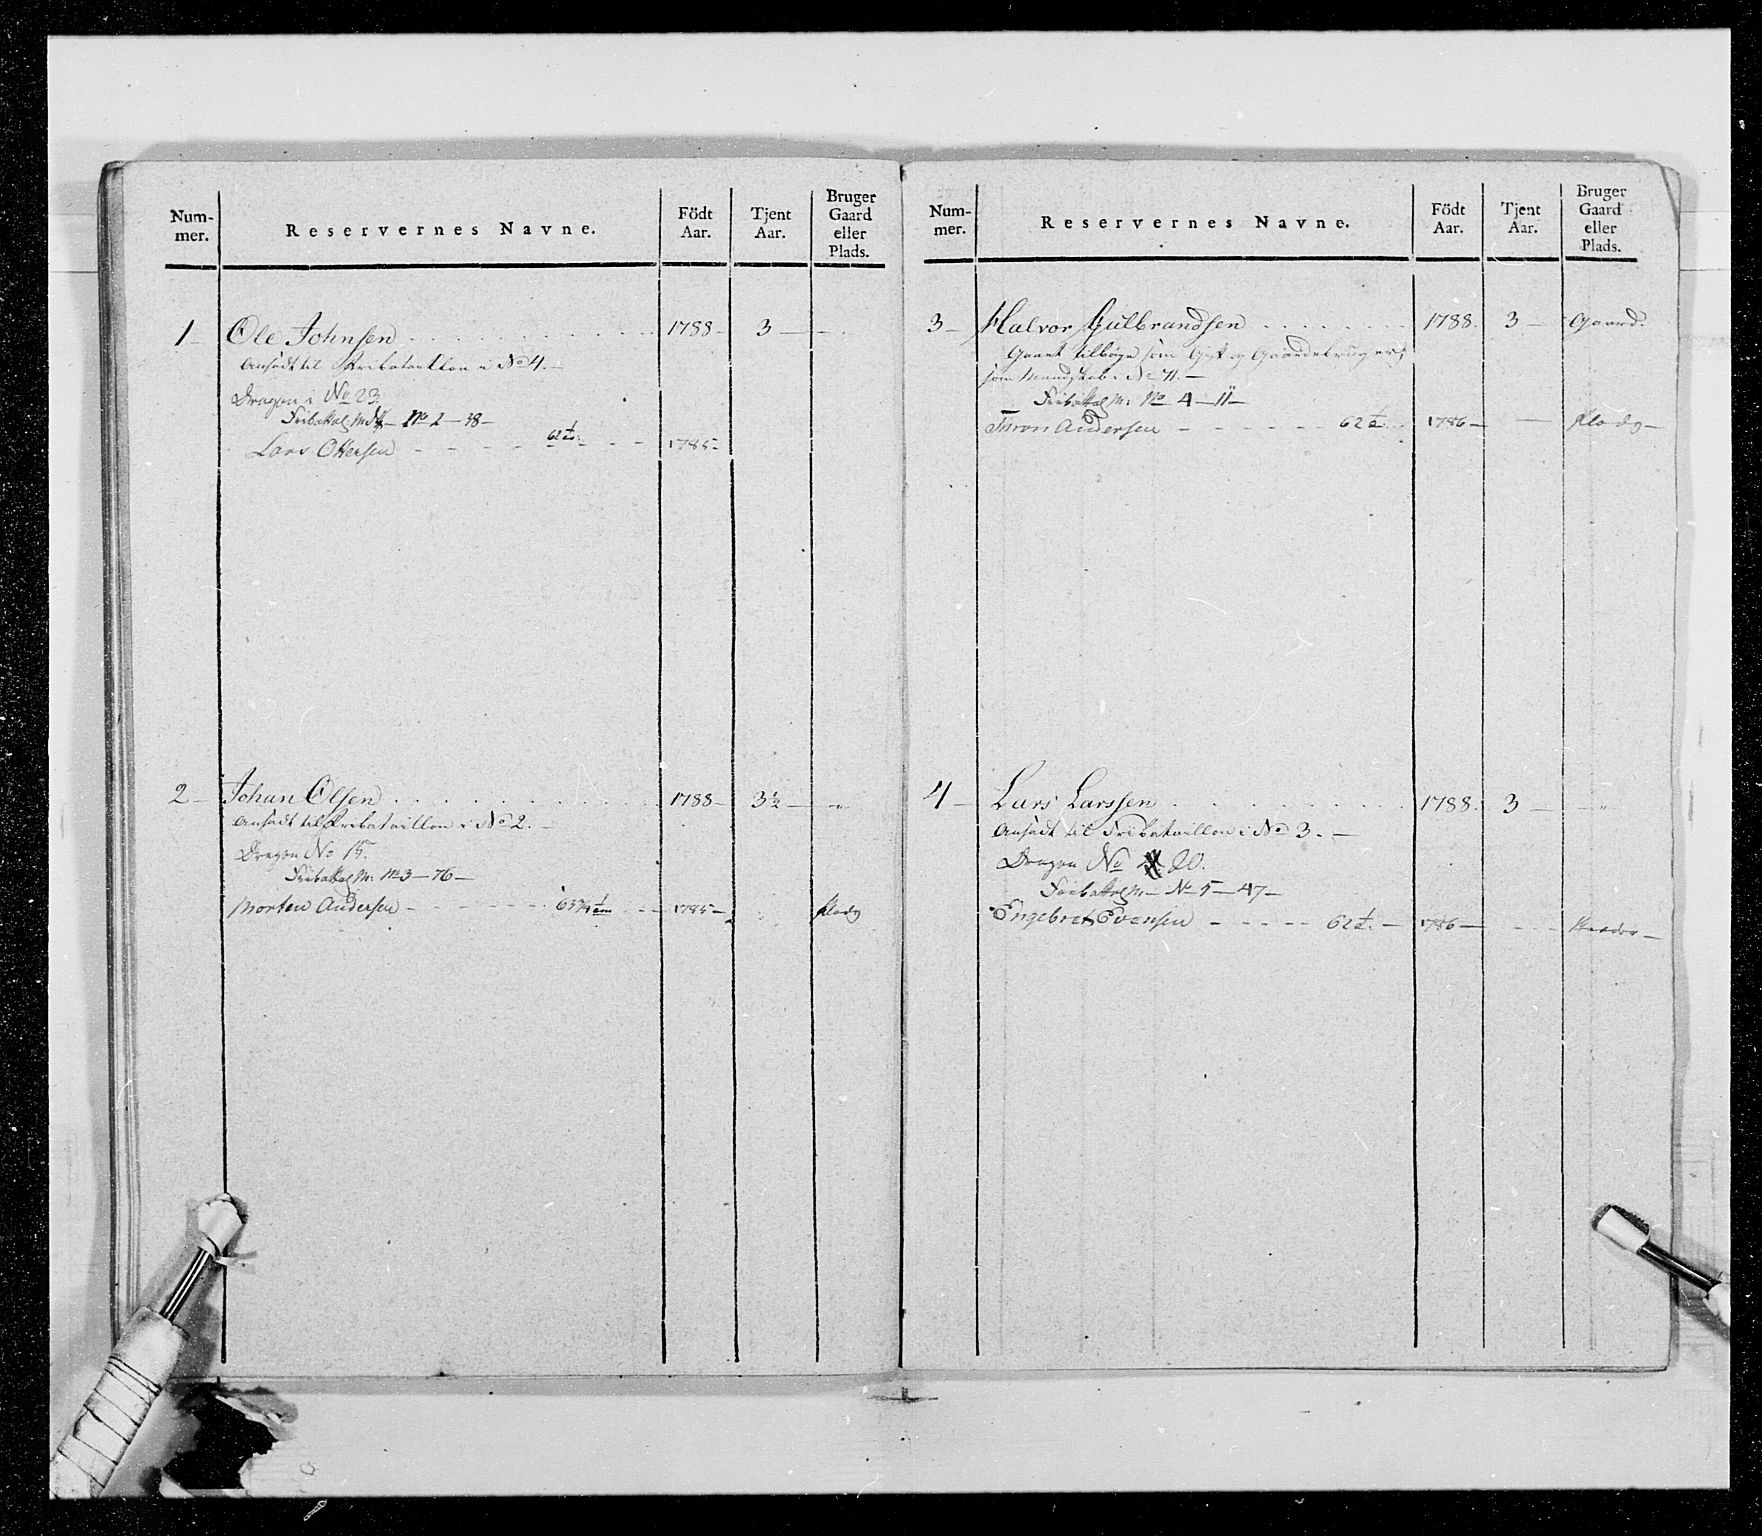 Num-
mer.
Reservernes Navne.
Födt
Aar.
Tjent
Aar.
Bruger
Gaard
eller
Plads.
1 Ole Johnsen 1788 3
Ansadt til Fribataillon i No 4.
Dragon i No 23
No 2 — 38
Lars Ottersen 62 1785
2 Johan Olsen 1788 3½
Ansadt til Fribataillon i No 2.
Dragon No 15.
No 3 — 76
Morten Andersen 63¾ 1785 Plads
Num-
mer.
Reservernes Navne.
Födt
Aar.
Tjent
Aar.
Bruger
Gaard
eller
Plads.
3 Halvor Gulbrandsen 1788. 3 Gaard.
som Gift og Gaardebruger,
som Mandskab i No 71.
No 4 — 11
Andersen 62 1786 Plads
4 Lars Larssen 1788. 3
Ansadt til Fribataillon i No 3.
Dragon No 20.
No 5 — 47
Engebret Evensen 62 1786